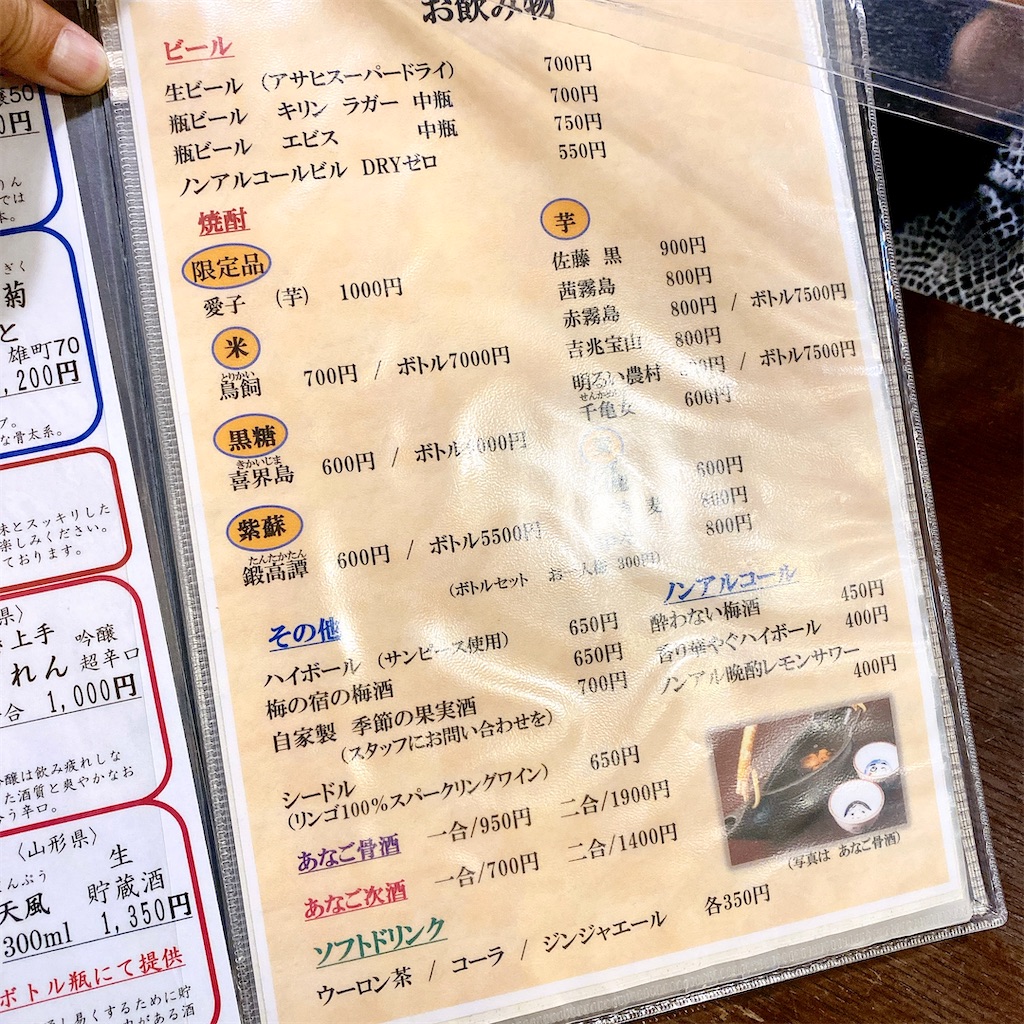 お飲み物
ビール
生ビール （アサヒスーパードライ） 700円
瓶ビール キリン ラガー 中瓶 700円
瓶ビール エビス 中瓶 750円
ノンアルコールビル DRYゼロ 550円
焼酎
限定品
愛子 （芋） 1000円
米
とりかい
鳥飼 700円 / ボトル7000円
黒糖
きかいじま
喜界島 600円 / ボトル 000円
紫蘇
たんたかたん
鍛高譚 600円 / ボトル5500円
芋
佐藤 黒 900円
茜霧島 800円
赤霧島 800円 / ボトル7500円
吉兆宝山 800円
明るい農村 円 / ボトル7500円
せんかめ
千亀女 600円
600円
麦 800円
800円
（ボトルセット お一人様 300円）
その他
ハイボール （サンピース使用） 650円
梅の宿の梅酒 650円
自家製 季節の果実酒 700円
（スタッフにお問い合わせを）
シードル 650円
（リンゴ100％スパークリングワイン）
あなご骨酒 一合/950円 二合/1900円
あなご次酒 一合/700円 二合/1400円
ソフトドリンク
ウーロン茶 / コーラ / ジンジャエール 各350円
ノンアルコール
酔わない梅酒 450円
香り華やぐハイボール 400円
ノンアル晩酌レモンサワー 400円
（写真は あなご骨酒）
50
0円
りん
では
本。
ぎく
菊
と
雄町70
,200円
プ。
な骨太系。
味とスッキリした
楽しみください。
ております。
県〉
上手 吟醸
れん 超辛口
合 1,000円
吟醸は飲み疲れしな
た酒質と爽やかなお
合う辛口。
〈山形県〉
んぷう 生
天風 貯蔵酒
300ml 1,350円
ボトル瓶にて提供
し易くするために貯
がある酒